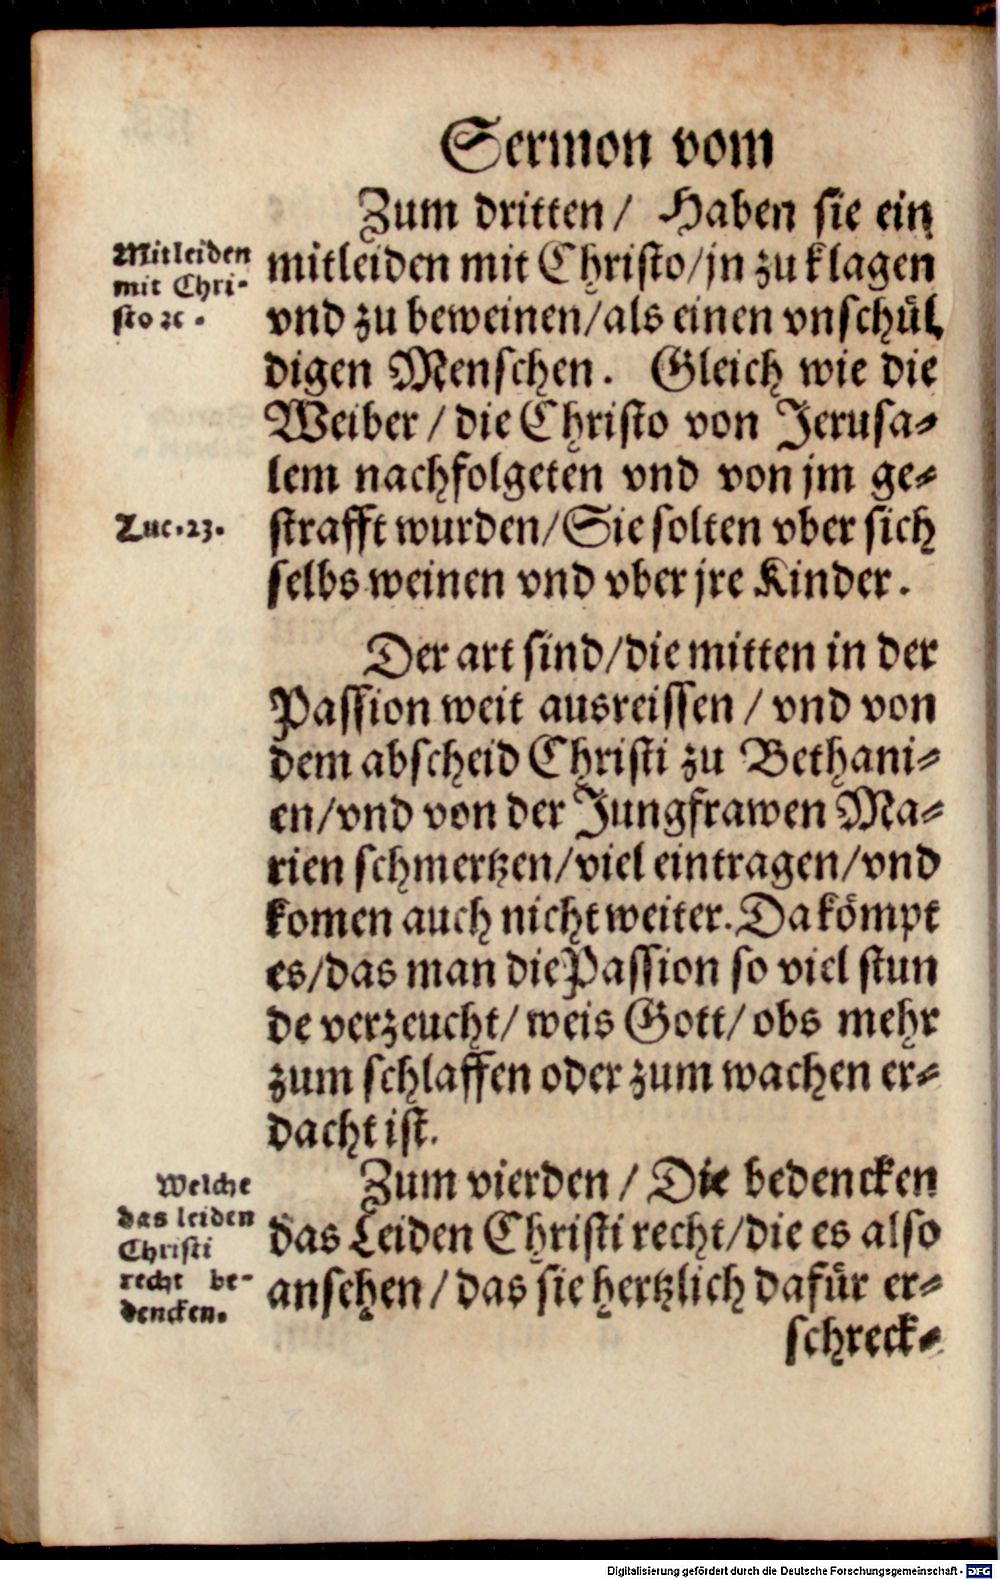 Sermon vom
Zum dritten / Haben sie ein
mitleiden mit Christo/jn zu klagen
vnd zu beweinen/als einen vnschül
digen Menschen. Gleich wie die
Weiber / die Christo von Jerusa-
lem nachfolgeten vnd von jm ge-
strafft wurden/Sie solten vber sich
selbs weinen vnd vber jre Kinder.
Mitleiden
mit Chri-
sto ꝛc.
Luc.23.
Der art sind/die mitten in der
Passion weit ausreissen / vnd von
dem abscheid Christi zu Bethani-
en/vnd von der Jungfrawen Ma-
rien schmertzen/viel eintragen/vnd
komen auch nicht weiter. Da kömpt
es/das man die Passion so viel stun
de verzeucht/ weis Gott/ obs mehr
zum schlaffen oder zum wachen er-
dacht ist.
Zum vierden / Die bedencken
das Leiden Christi recht/die es also
ansehen / das sie hertzlich dafür er-
schreck-
Welche
das leiden
Christi
recht be-
dencken.
Digitalisierung gefördert durch die Deutsche Forschungsgemeinschaft - DFG